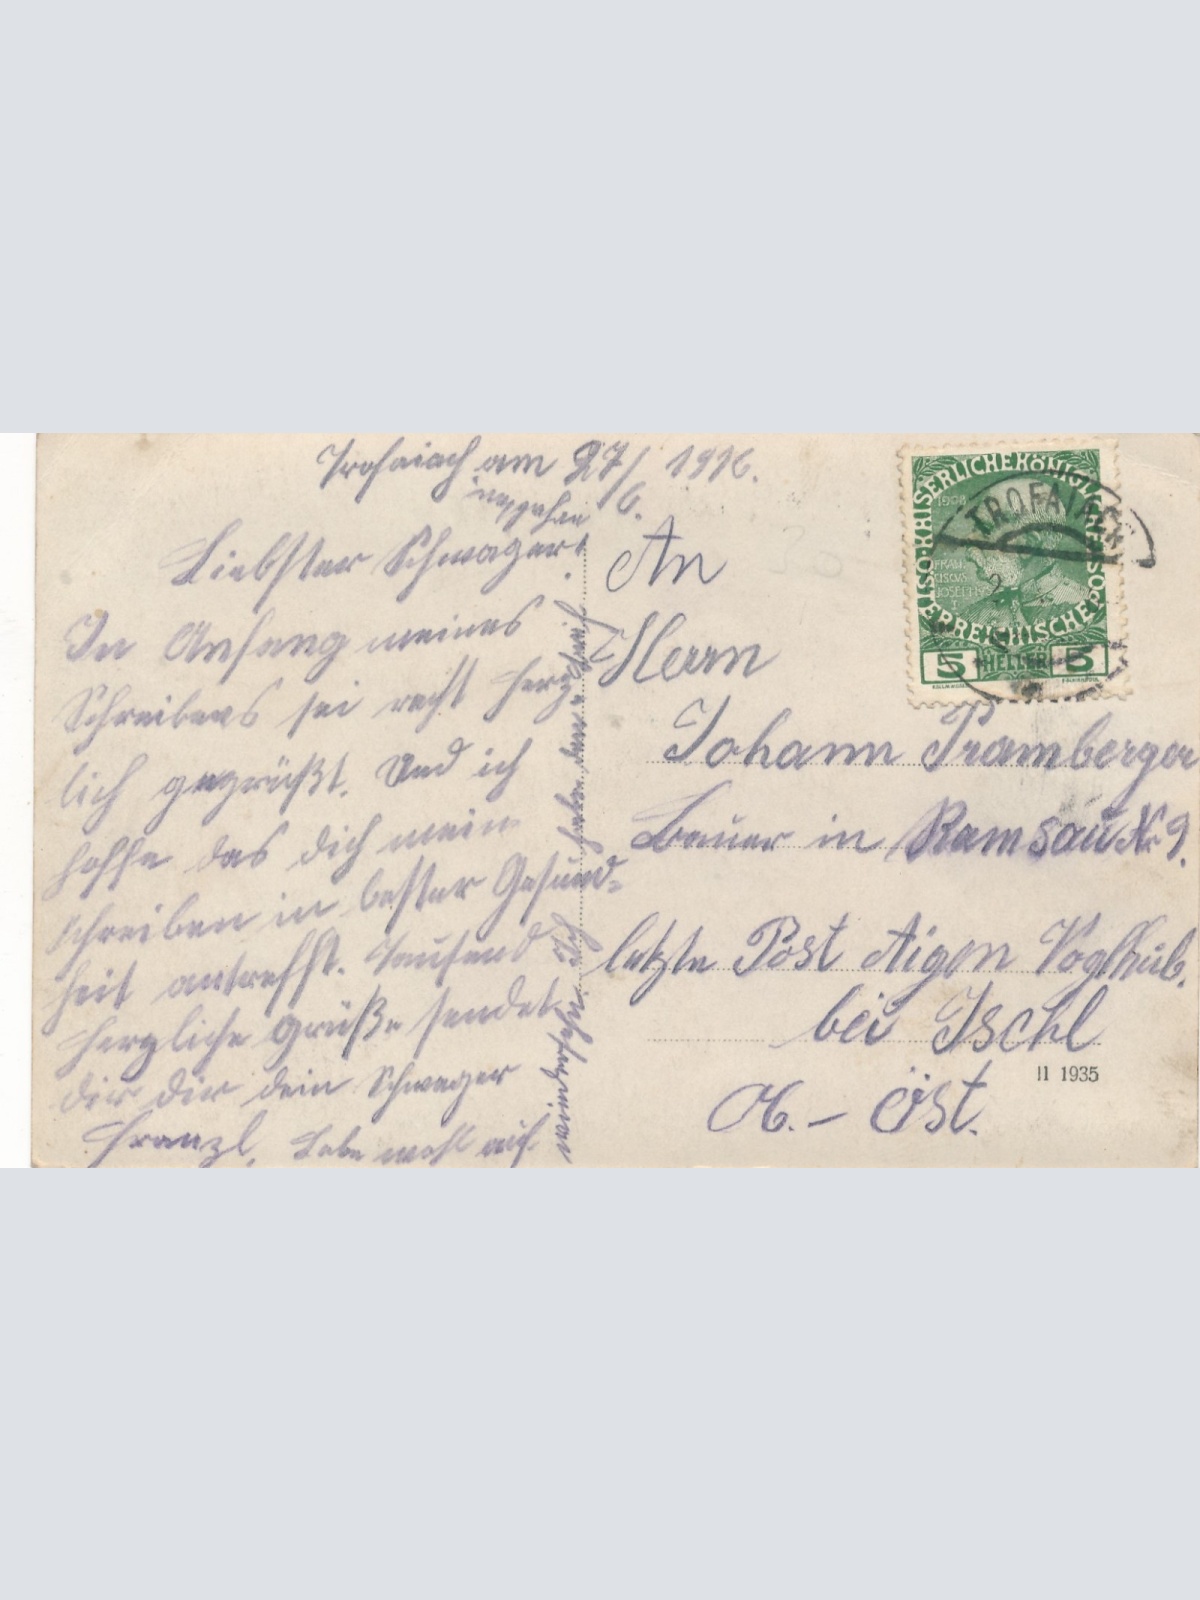 Trofaiach am 27/6. 1916.
Liebster Schwager!
Im Anfang meines
Schreibens sei recht herz
lich gegrüßt. Und ich
hoffe das dich mein
schreiben in bester Gesund=
heit antrefft. Tausend
herzliche Grüße sendet
dir dein Schwager
Franzl. Lebe wohl auf
wiedersehn. Ich habe den
An
Herrn
Johann Pramberger
Bauer in Ramsau Nr 9.
letzte Post Aigen Voglhub.
bei Ischl
Ob. - Öst.
II 1935
KAISERLICHE KÖNIGLICHE ÖSTERREICHISCHE POST
1908
FRAN
CISCUS
JOSEPH
I
5 HELLER 5
TROFAIACH